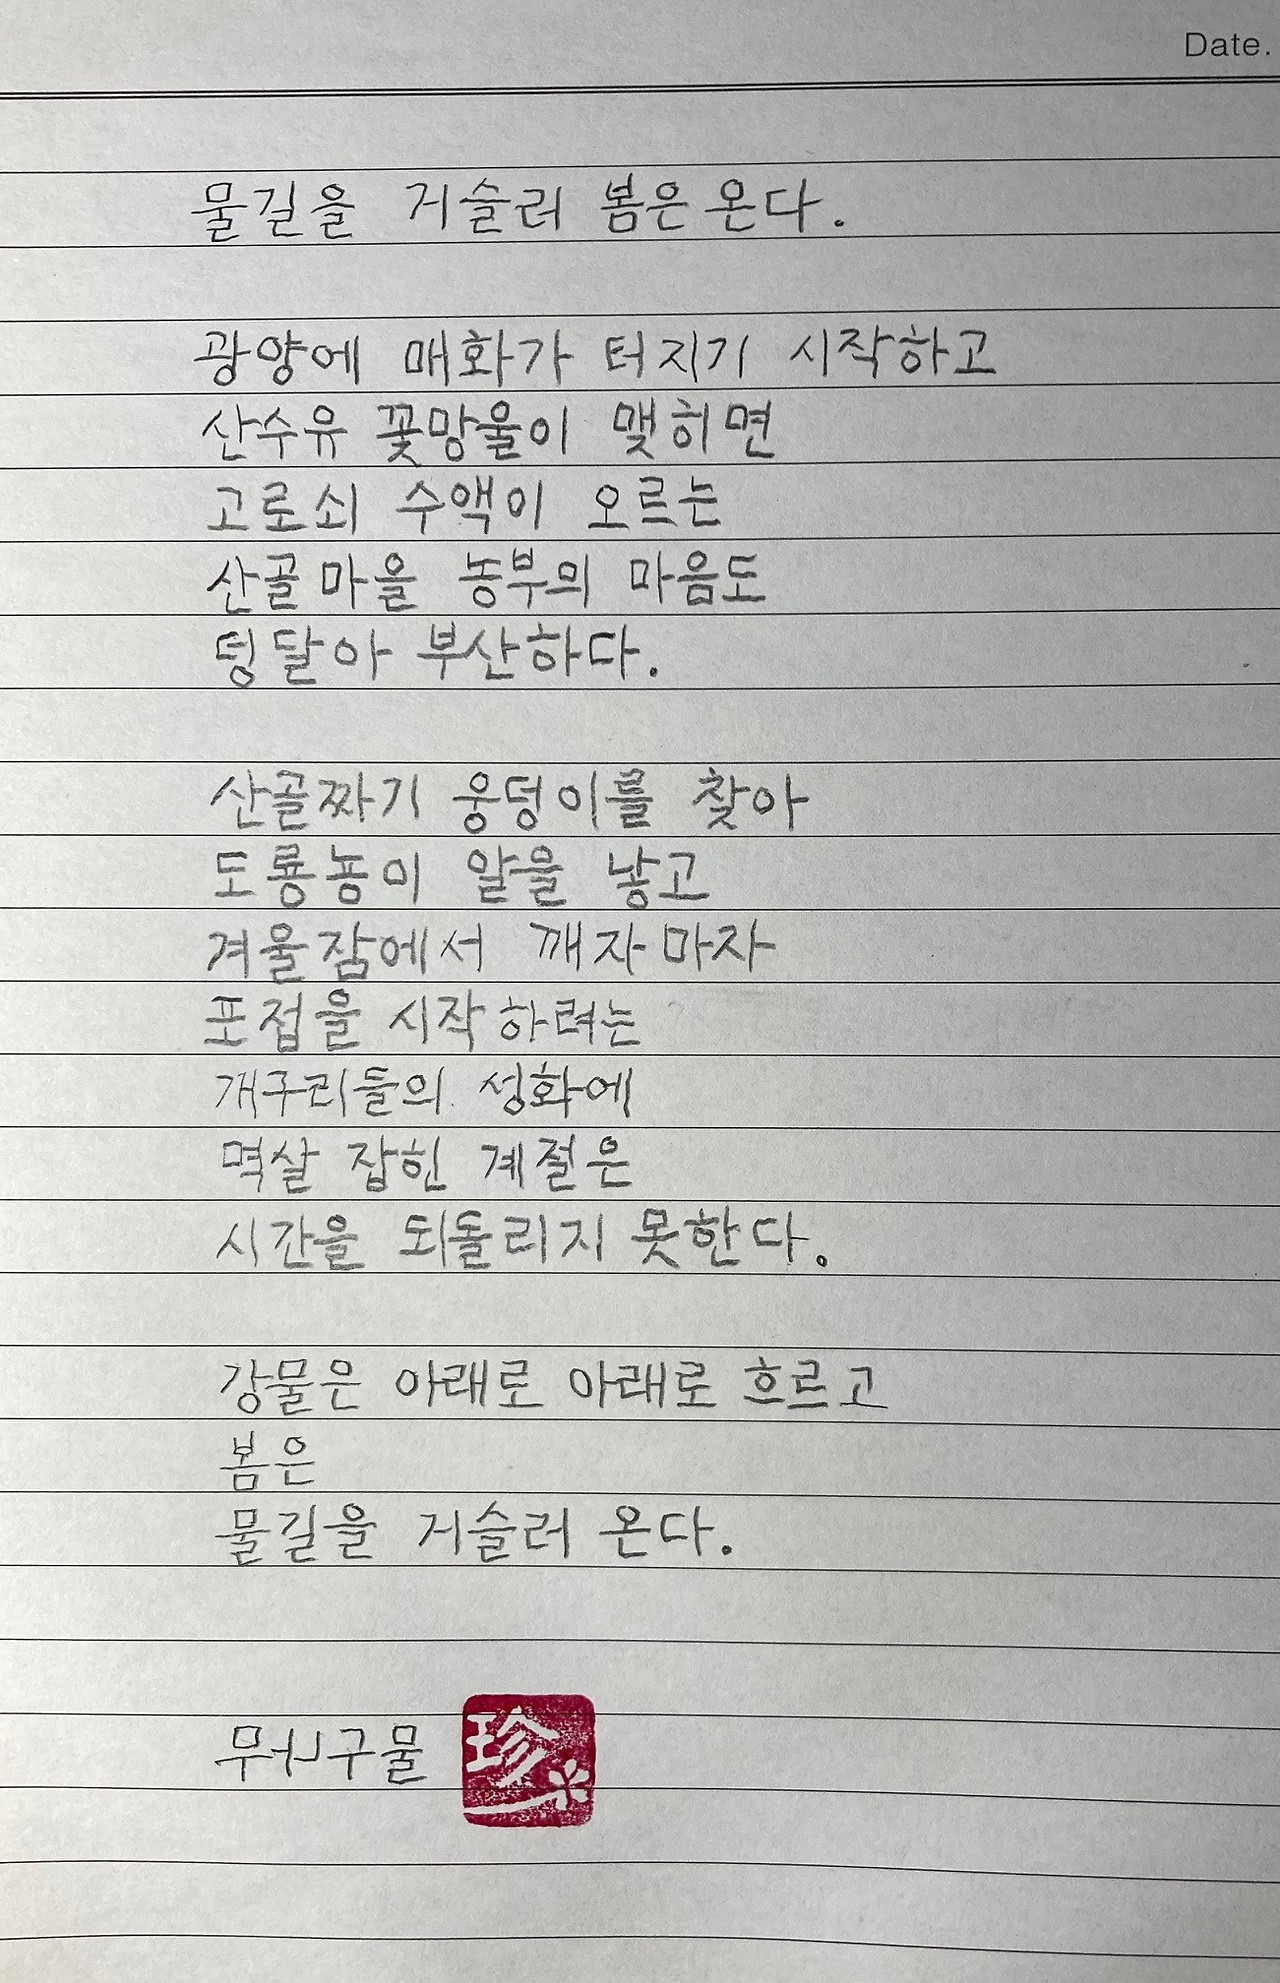 Date.
물길을 거슬러 봄은 온다.
광양에 매화가 터지기 시작하고
산수유 꽃망울이 맺히면
고로쇠 수액이 오르는
산골마을 농부의 마음도
덩달아 부산하다.
산골짜기 웅덩이를 찾아
도룡뇽이 알을 낳고
겨울잠에서 깨자마자
포접을 시작하려는
개구리들의 성화에
멱살 잡힌 계절은
시간을 되돌리지 못한다.
강물은 아래로 아래로 흐르고
봄은
물길을 거슬러 온다.
珍